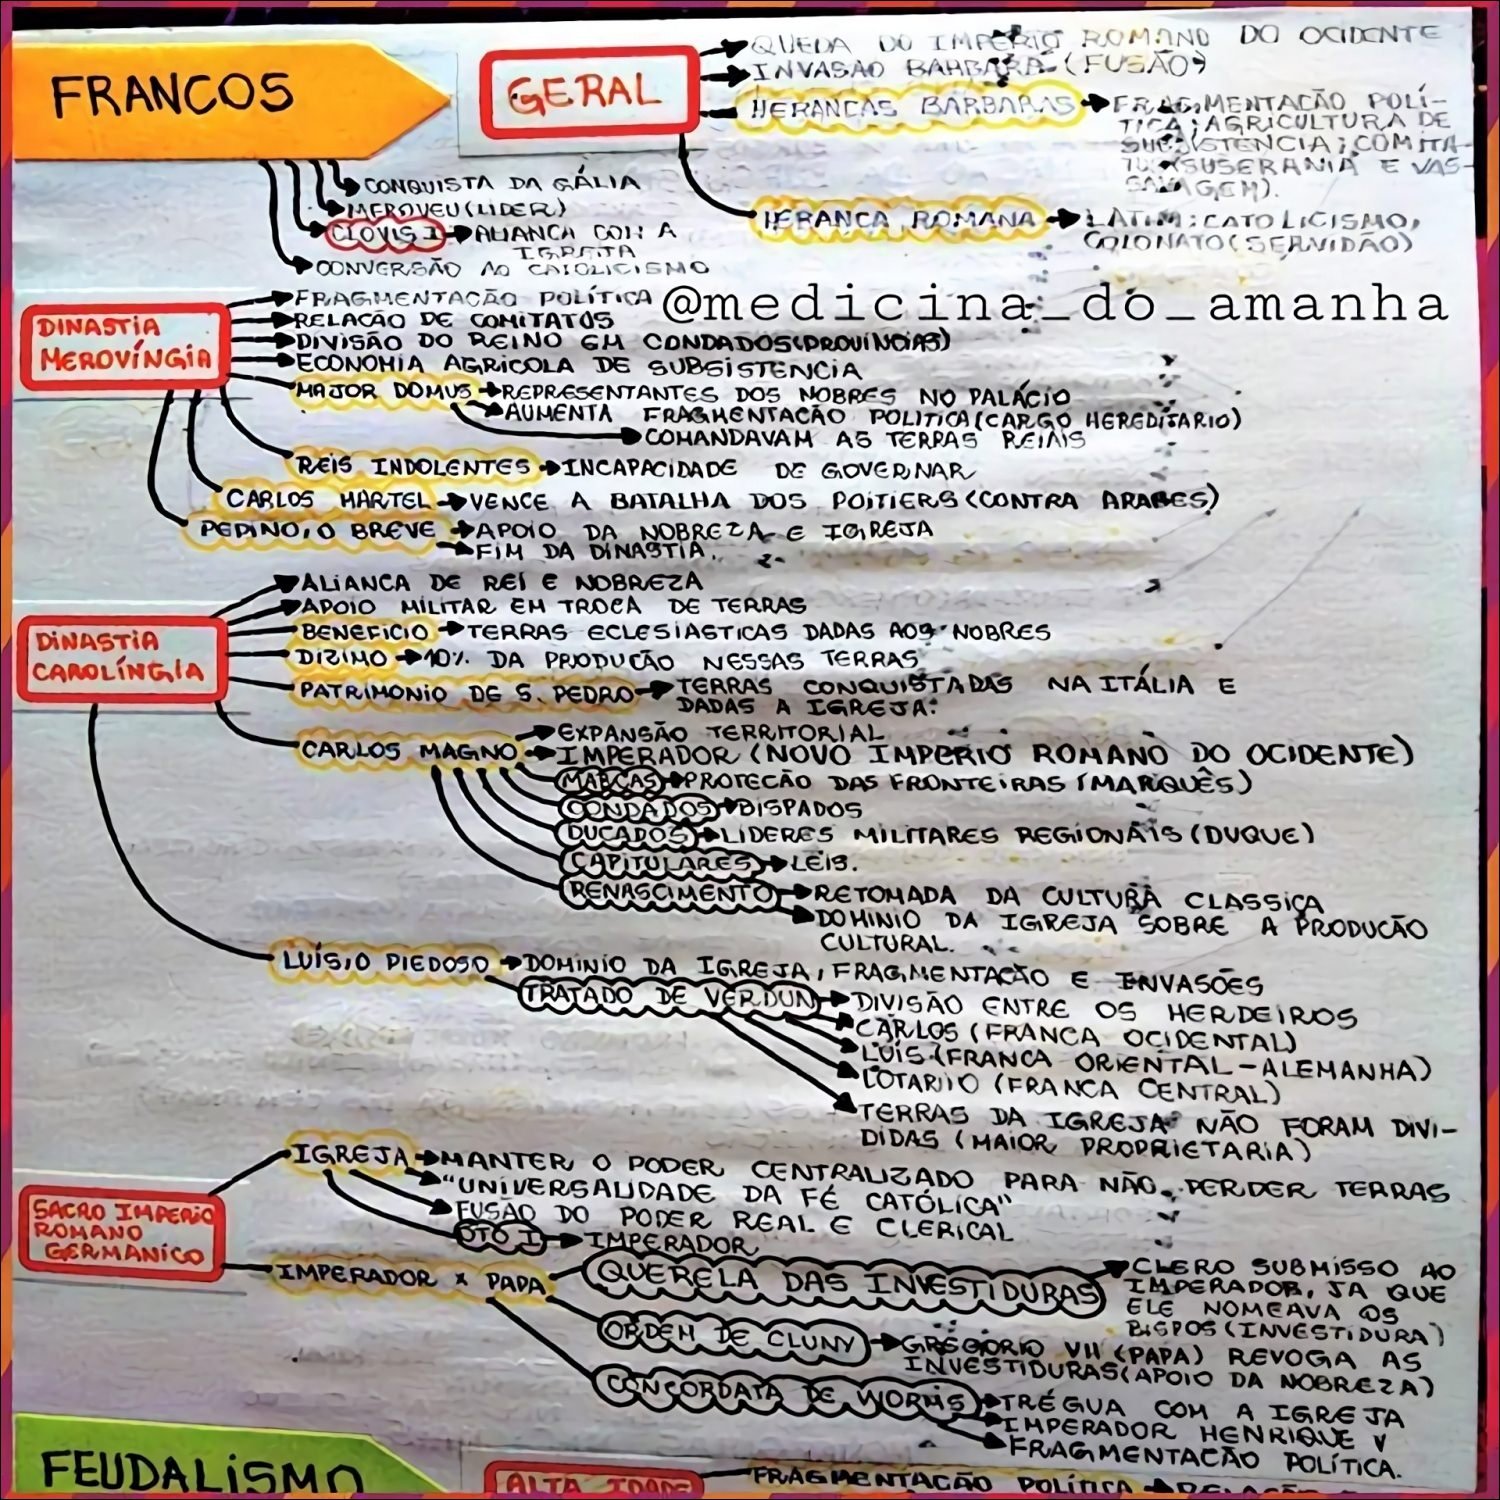 FRANCOS
GERAL
QUEDA DO IMPÉRIO ROMANO DO OCIDENTE
INVASÃO BÁRBARA (FUSÃO)
HERANCAS BÁRBARAS → FRAGMENTAÇÃO POLÍ-
TICA; AGRICULTURA DE
SUBSISTENCIA; COMITA-
TUS (SUSERANIA E VAS-
SALAGEM).
HERANCA ROMANA → LATIM; CATOLICISMO,
COLONATO (SERVIDÃO)
CONQUISTA DA GÁLIA
MEROVEU (LIDER)
CLOVIS I → ALIANCA COM A
IGREJA
CONVERSÃO AO CATOLICISMO
@medicina_do_amanha
DINASTIA
MEROVÍNGIA
FRAGMENTACÃO POLÍTICA
RELACÃO DE COMITATOS
DIVISÃO DO REINO EM CONDADOS (PROVINCIAS)
ECONOMIA AGRICOLA DE SUBSISTENCIA
MAJOR DOMUS → REPRESENTANTES DOS NOBRES NO PALÁCIO
AUMENTA FRAGMENTACÃO POLITICA (CARGO HEREDITARIO)
COMANDAVAM AS TERRAS REIAIS
REIS INDOLENTES → INCAPACIDADE DE GOVERNAR
CARLOS MARTEL → VENCE A BATALHA DOS POITIERS (CONTRA ARABES)
PEPINO, O BREVE → APOIO DA NOBREZA E IGREJA
FIM DA DINASTIA.
DINASTIA
CAROLÍNGIA
ALIANCA DE REI E NOBREZA
APOIO MILITAR EM TROCA DE TERRAS
BENEFICIO → TERRAS ECLESIASTICAS DADAS AOS NOBRES
DIZIMO → 10% DA PRODUCÃO NESSAS TERRAS
PATRIMONIO DE S. PEDRO → TERRAS CONQUISTADAS NA ITÁLIA E
DADAS A IGREJA.
CARLOS MAGNO → EXPANSÃO TERRITORIAL
IMPERADOR (NOVO IMPERIO ROMANO DO OCIDENTE)
MARCAS → PROTECÃO DAS FRONTEIRAS (MARQUÊS)
CONDADOS → BISPADOS
DUCADOS → LIDERES MILITARES REGIONAIS (DUQUE)
CAPITULARES → LEIS.
RENASCIMENTO → RETOMADA DA CULTURA CLASSICA
DOMINIO DA IGREJA SOBRE A PRODUCÃO
CULTURAL.
LUÍS, O PIEDOSO → DOMINIO DA IGREJA, FRAGMENTACÃO E INVASÕES
TRATADO DE VERDUN → DIVISÃO ENTRE OS HERDEIROS
CARLOS (FRANCA OCIDENTAL)
LUÍS (FRANCA ORIENTAL - ALEMANHA)
LOTARIO (FRANCA CENTRAL)
TERRAS DA IGREJA NÃO FORAM DIVI-
DIDAS (MAIOR PROPRIETARIA)
SACRO IMPERIO
ROMANO
GERMANICO
IGREJA → MANTER O PODER CENTRALIZADO PARA NÃO PERDER TERRAS
"UNIVERSALIDADE DA FÉ CATÓLICA"
FUSÃO DO PODER REAL E CLERICAL
OTO I → IMPERADOR
IMPERADOR X PAPA
QUERELA DAS INVESTIDURAS → CLERO SUBMISSO AO
IMPERADOR, JA QUE
ELE NOMEAVA OS
BISPOS (INVESTIDURA)
ORDEM DE CLUNY → GREGÓRIO VII (PAPA) REVOGA AS
INVESTIDURAS (APOIO DA NOBREZA)
CONCORDATA DE WORMS → TRÉGUA COM A IGREJA
IMPERADOR HENRIQUE V
FRAGMENTACÃO POLÍTICA.
FEUDALISMO
ALTA IDADE
FRAGMENTACÃO POLÍTICA →